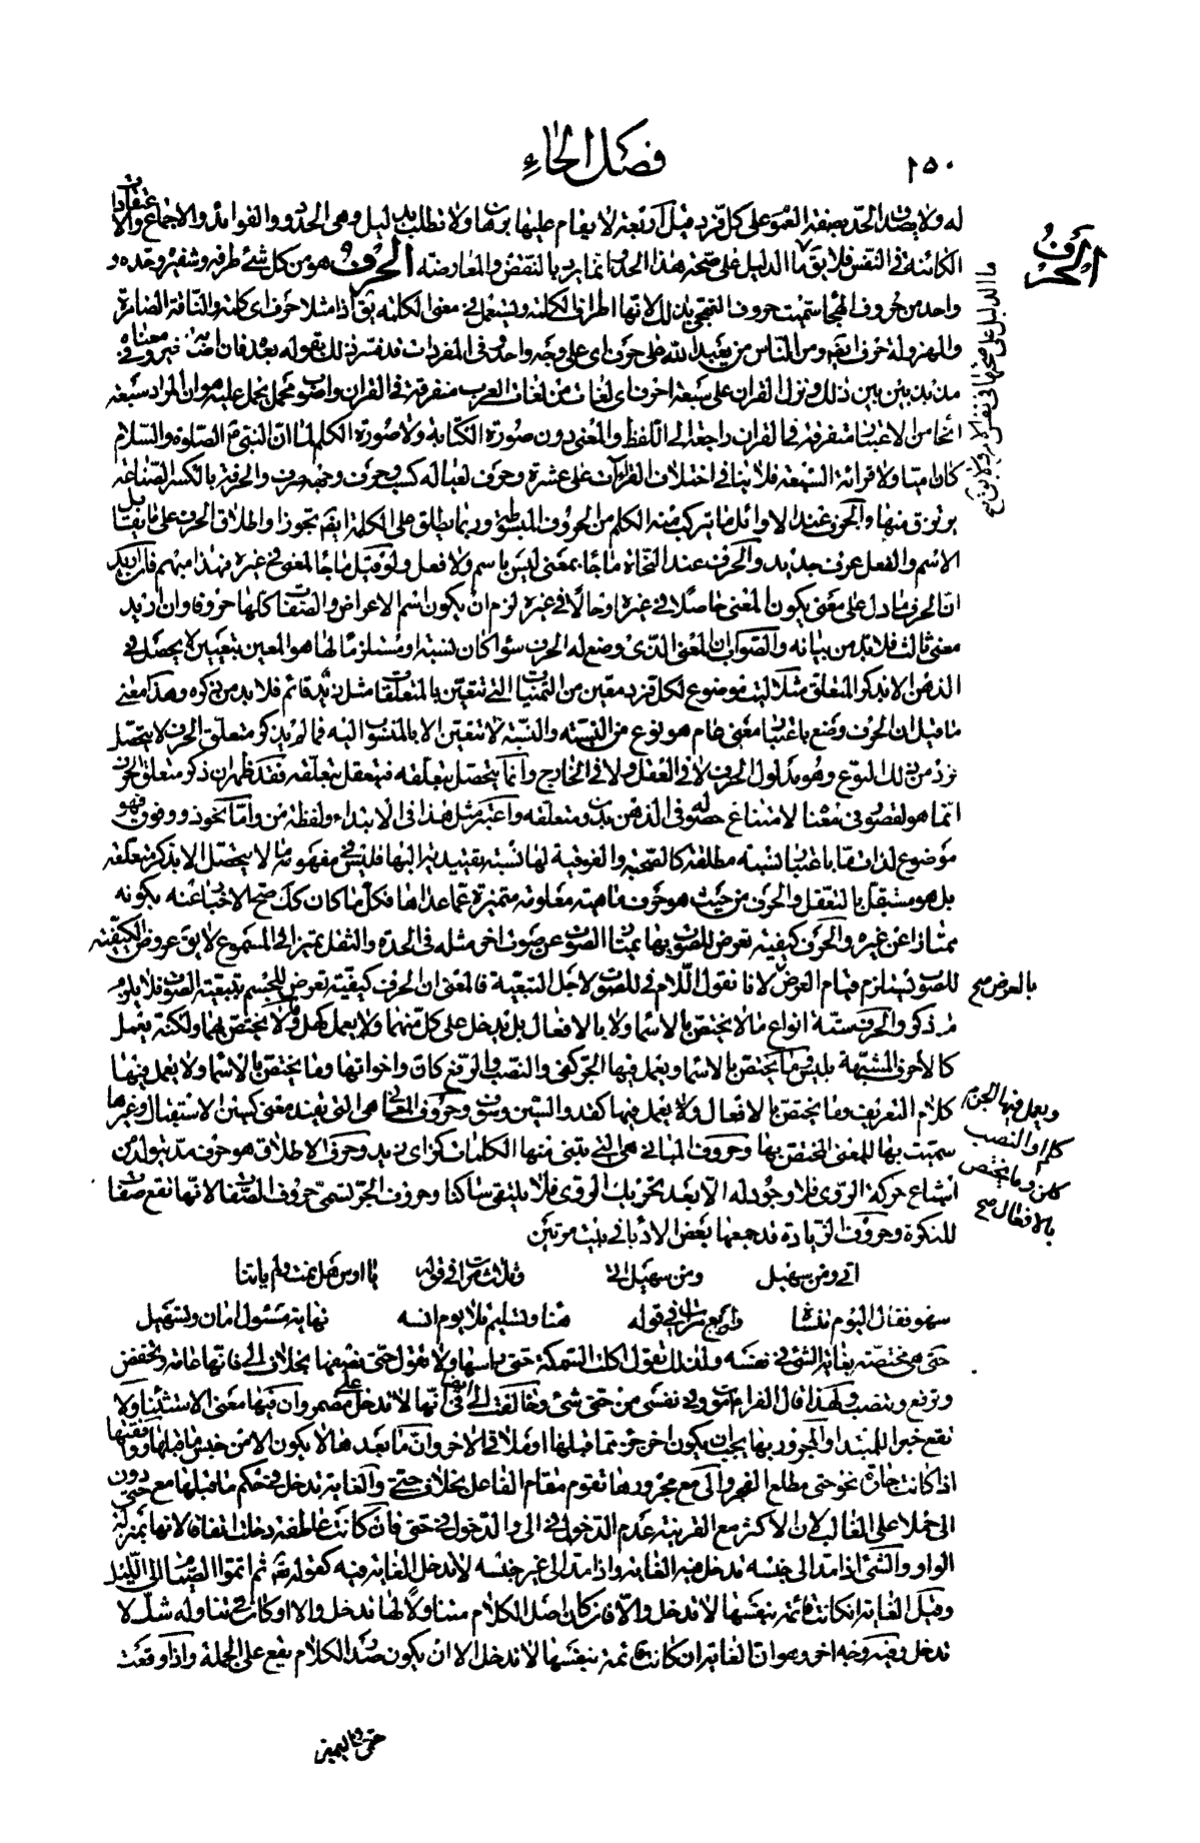 ١٥٠
فصل الحاء
له ولا يصدق الحد بصفة العموم على كل فرد قيل أربعة لا يقام عليها برهان ولا تطلب بدليل وهى الحدود والفوائد والاجماع والاعتقادات
الكائنة فى النفس فلا يقال ما الدليل على صحة هذا الحد وانما يرد بالنقض والمعارضة الحرف هو من كل شئ طرفه وشفيره وحده و
واحد من حروف الهجا سميت حروف التهجى بذلك لانها اطراف الكلمة ويستعمل فى معنى الكلمة يق اذا مثلا حرف اى كلمة والناقة الضامرة
والمهزولة حرف ايضا ومن الناس من يعبد الله على حرف اى على وجه واحد وفى المفردات قد فسر ذلك بقوله بعد فان اصابه خير وفى معناه
مذبذبين بين ذلك ونزل القران على سبعة احرف اى لغات من لغات العرب متفرقة فى القران واصوب محمل يحمل عليه هو ان المراد سبعة
انحا من الاعتبا متفرقة فى القران راجعة الى اللفظ والمعنى دون صورة الكتابة ولا صورة الكلم لما ان النبى عليه الصلوة والسلام
كان اميا ولا قرائة السبعة فلا ينافى اختلاف القرآن على عشرة وحرف لعياله كسب وحرف وجهه صرف والحرفة بالكسر الصناعة
يرتزق منها والحرف عند الاوائل ما يتركب منه الكلم من الحروف المبسوطة وربما يطلق على الكلمة ايضا تجوزا واطلاق الحرف على ما يقابل
الاسم والفعل عرف جديد والحرف عند النحاة ما جا بمعنى ليس باسم ولا فعل ولو قيل ما جا لمعنى فى غيره فهذا مبهم فان اريد
ان الحرف ما دل على معنى يكون المعنى حاصلا فى غيره او حالا فى غيره لزم ان يكون اسم الاعراض والصفات كلها حروفا وان اريد
معنى ثالث فلا بد من بيانه والصواب ان المعنى الذى وضع له الحرف سوا كان نسبة او مستلزما لها هو المعين بتعيين لا يحصل فى
الذهن الا بذكر المتعلق مثلا ليت موضوع لكل فرد معين من التمنيات التى تتعين بالمتعلقات مثل زيد قائم فلا بد من ذكره وهذا معنى
ما قيل ان الحرف وضع باعتبا معنى عام هو نوع من النسبة والنسبة لا تتعين الا بالمنسوب اليه فما لم يذكر متعلق الحرف لا يتحصل
فرد من ذلك النوع وهو مدلول الحرف لا فى العقل ولا فى الخارج وانما يتحصل بتعلقه فيتعقل بتعلقه فقد ظهر ان ذكر متعلق الحرف
انما هو لقصور فى معنا لامتناع حصوله فى الذهن بدون متعلقه واعتبر مثل هذا فى الابتداء ولفظة من واما نحو ذو وفوق فهو
موضوع لذات ما باعتبا نسبة مطلقة كالصحبة والفوقية لها نسبة تقييدية اليها فليس فى مفهومه ما لا يتحصل الا بذكر متعلقه
بل هو مستقل بالتعقل والحرف من حيث هو حرف ماهية معلومة متميزة عما عداها فكل ما كان كذلك صح الاخبا عنه بكونه
ممتازا عن غيره والحرف كيفية تعرض للصوت بها يمتاز الصوت عن صوت اخر مثله فى الحدة والثقل تميزا فى المسموع لا يق عروض الكيفية
للصوت يستلزم قيام العرض لانا نقول اللام فى للصوت لاجل التبعية فالمعنى ان الحرف كيفية تعرض للجسم بتبعية الصوت فلا يلزم
ما ذكر والحرف ستة انواع ما لا يختص بالاسما ولا بالافعال بل يدخل على كل منهما ولا يعمل كهل وما لا يختص بهما ولكنه يعمل
كالاحرف المشبهة بليس وما يختص بالاسما ويعمل فيها الجر كفى والنصب والرفع كان واخواتها وما يختص بالاسما ولا يعمل فيها
كلام التعريف وما يختص بالافعال ولا يعمل فيها كقد والسين وسوف وحروف المعانى هى التى يفيد معنى كسين الاستقبال وغيرها
سميت بها للمعنى المختص بها وحروف المبانى هى التى يبتنى منها الكلمات كزاى زيد وحرف الاطلاق هو حرف مد يتولد من
اشباع حركة الروى فلا وجود له الا بعد تحريك الروى فلا يلتقى ساكنا وحروف الجر تسمى حروف الصفات لانها تقع صفات
للنكرة وحروف الزيادة قد جمعها بعض الادبا فى بيت مرتين
اتى ومن سهيل ومن سهيل اتى وثلث مرات فى قوله يا اوس هل نمت ولم ياتنا
سهو فقال اليوم تنسا واربع مرات فى قوله هنا وتسليم تلا يوم انسه نهاية مسئول امان وتسهيل
حتى هى مختصة بغاية الشئ فى نفسه ولذلك تقول اكلت السمكة حتى راسها ولا تقول حتى نصفها بخلاف الى فانها عامة وتخفض
وترفع وتنصب ولهذا قال الفراء اموت وفى نفسى من حتى شئ وخالفت الى فى انها لا تدخل على مضمر وان فيها معنى الاستثناء ولا
تقع خبرا للمبتدا والمجرور بها يجب ان يكون اخر جزء مما قبلها او ملاقى الاخر وان ما بعدها لا يكون الا من جنس ما قبلها ووافقتها
اذا كانت جارة نحو حتى مطلع الفجر والى مع مجرورها تقوم مقام الفاعل بخلاف حتى والغاية تدخل فى حكم ما قبلها مع حتى دون
الى حملا على الغالب لان الاكثر مع القرينة عدم الدخول فى الى والدخول فى حتى فان كانت عاطفة دخلت اتفاقا لانها بمنزلة
الواو والشئ اذا مد الى جنسه تدخل فيه الغاية واذا مد الى غير جنسه لا تدخل الغاية فيه كقوله تعالى ثم اتموا الصيام الى الليل
وقيل الغاية ان كانت قائمة بنفسها لا تدخل والا فان كان اصل الكلام متناولا لها تدخل والا او كان فى تناوله شك لا
تدخل وفيه وجه اخر وهو ان الغاية ان كانت قائمة بنفسها لا تدخل الا ان يكون صدر الكلام يقع على الجملة واذا وقعت
الحرف
ما الدليل على صحتها فى نفس الامر ولا يق صح
بالعرض صح
ويعمل فيها الجزم
كلم او النصب
كلن وما يختص
بالافعال صح